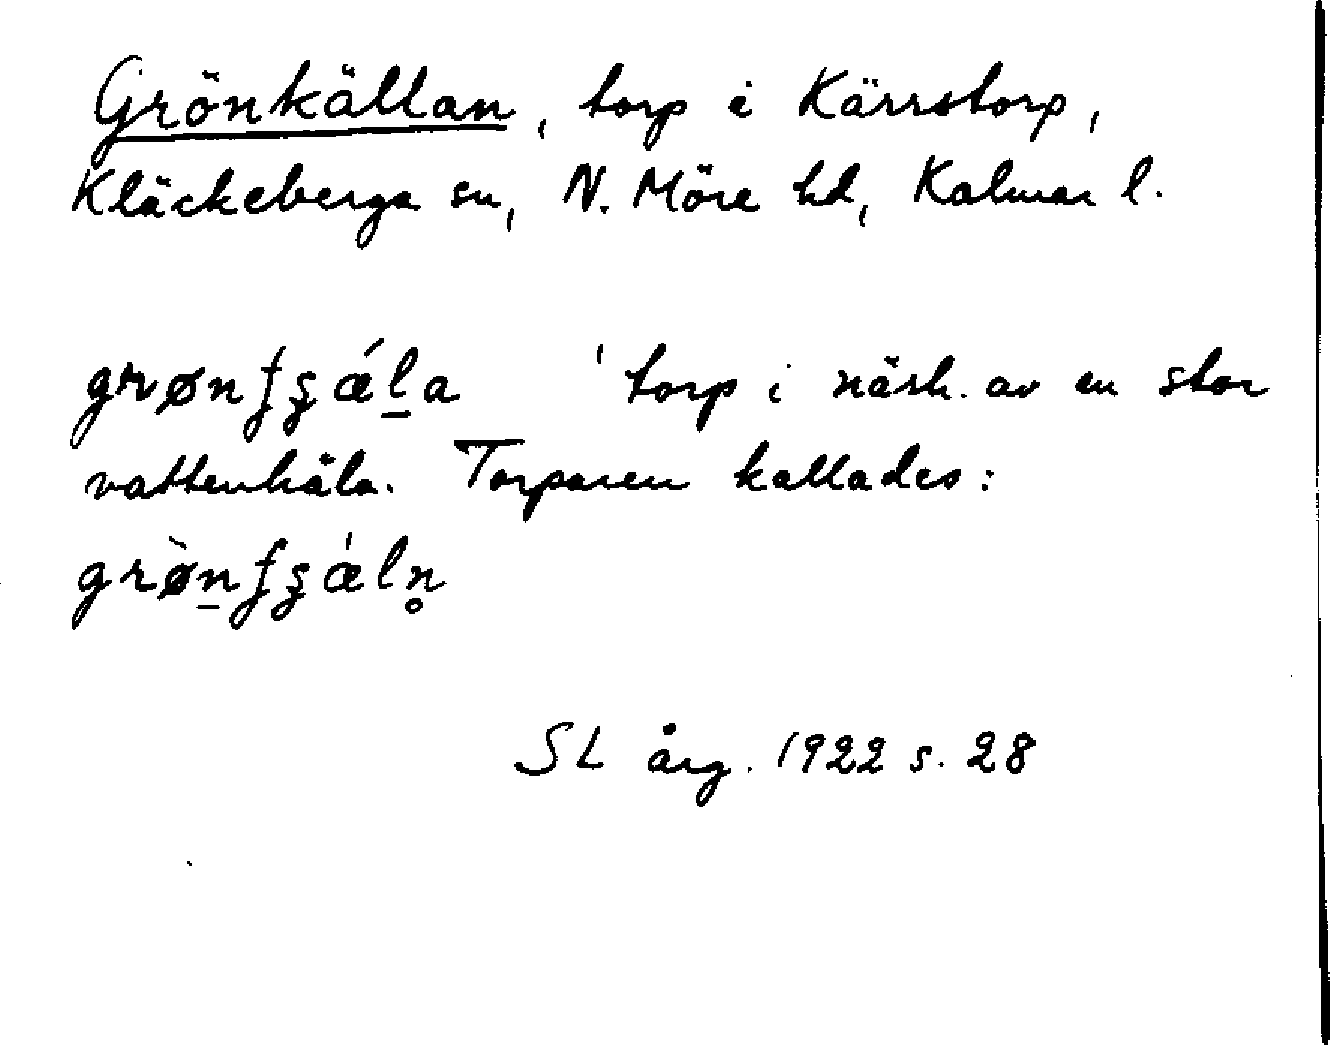 Grönkällan, torp i Kärrstorp,
Kläckeberga sn, N. Möre hd, Kalmar l.
grønʄʂǽl̲a ' torp i närh. av en stor
vattenhåla. Torparen kallades:
grø̀n̲ʄʂǽln̥
SL årg. 1922 s. 28